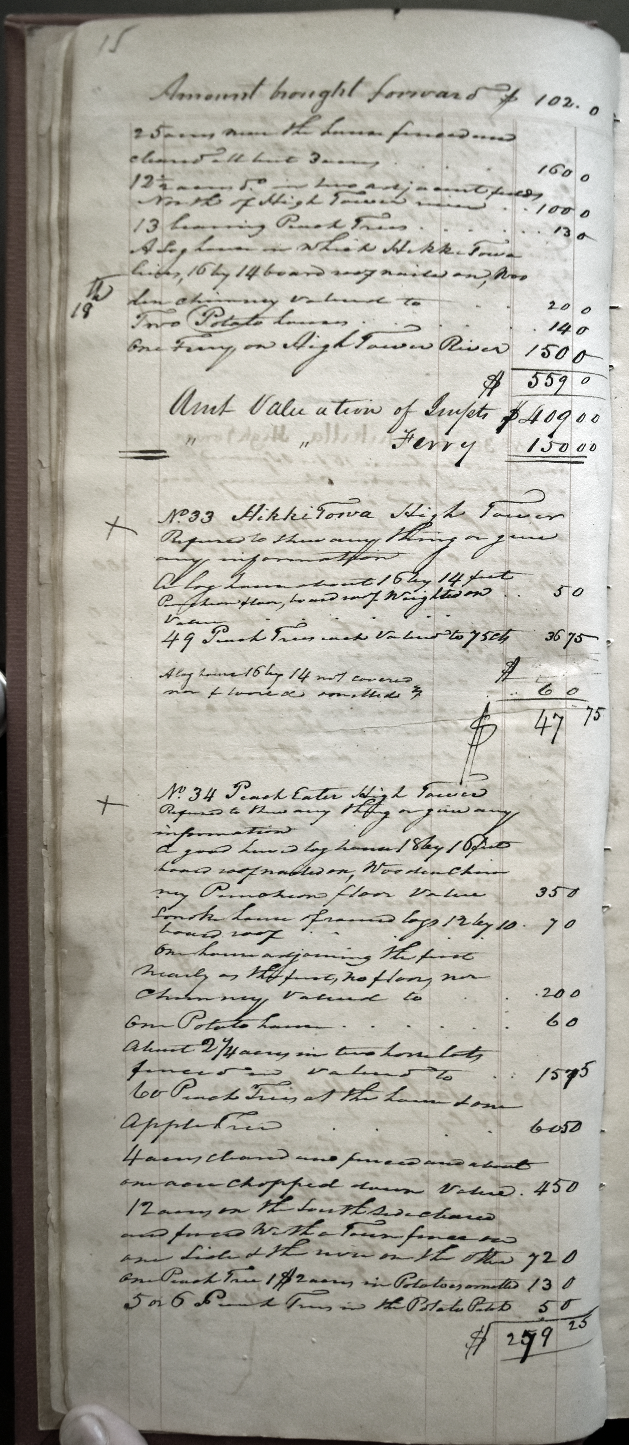 15
Amount brought forward $ 102.0
25 acres near the house fenced and
cleared all but 3 acres . . . 160 0
12½ acres do in two adjacent fields
North of High Tower river . . 100 0
13 bearing Peach Trees . . . . 13 0
A Log house in which Hikki Towa
lives, 16 by 14 board roof nailed on, Woo
den chimney valued to . . 20 0
19th
Two Potato houses . . . . 14 0
One Ferry on High Tower River 150 0
$ 559 0
Amt Valuation of Impts $ 409 00
" " Ferry 150 00
+ No 33 Hikki Towa High Tower
Refused to shew any thing or give
any information
A log house about 16 by 14 feet
Puncheon floor, board roof Weighted on . . 5 0
Value . . .
49 Peach Trees each Valued to 75cts 36 75
$
A log house 16 by 14 not covered
nor floored . . 6 0
$ 47 75
+ No 34 Peach Eater High Tower
Refused to shew any thing or give any
information
A good hewed log house 18 by 16 feet
board roof nailed on, Wooden Chim
ney Puncheon floor Value 35 0
Smoke house of round logs 12 by 10 . 7 0
board roof . .
One house adjoining the first
nearly as the first, no floor, nor
Chimney Valued to . . 20 0
One Potato house . . . . . 6 0
About 2¼ acres in two horse lots
fenced in Valued to . . 15 75
60 Peach Trees at the house & one
Apple Tree . . . 60 50
4 acres cleared and fenced and about
one acre chopped down Value . 45 0
12 acres on the South side cleared
and fenced With a Town fence on
one Side & the river on the other 72 0
One Peach Tree 1$ 2 acres in Potatoes 13 0
5 or 6 Peach Trees in the Potato Patch 5 0
$ 279 25